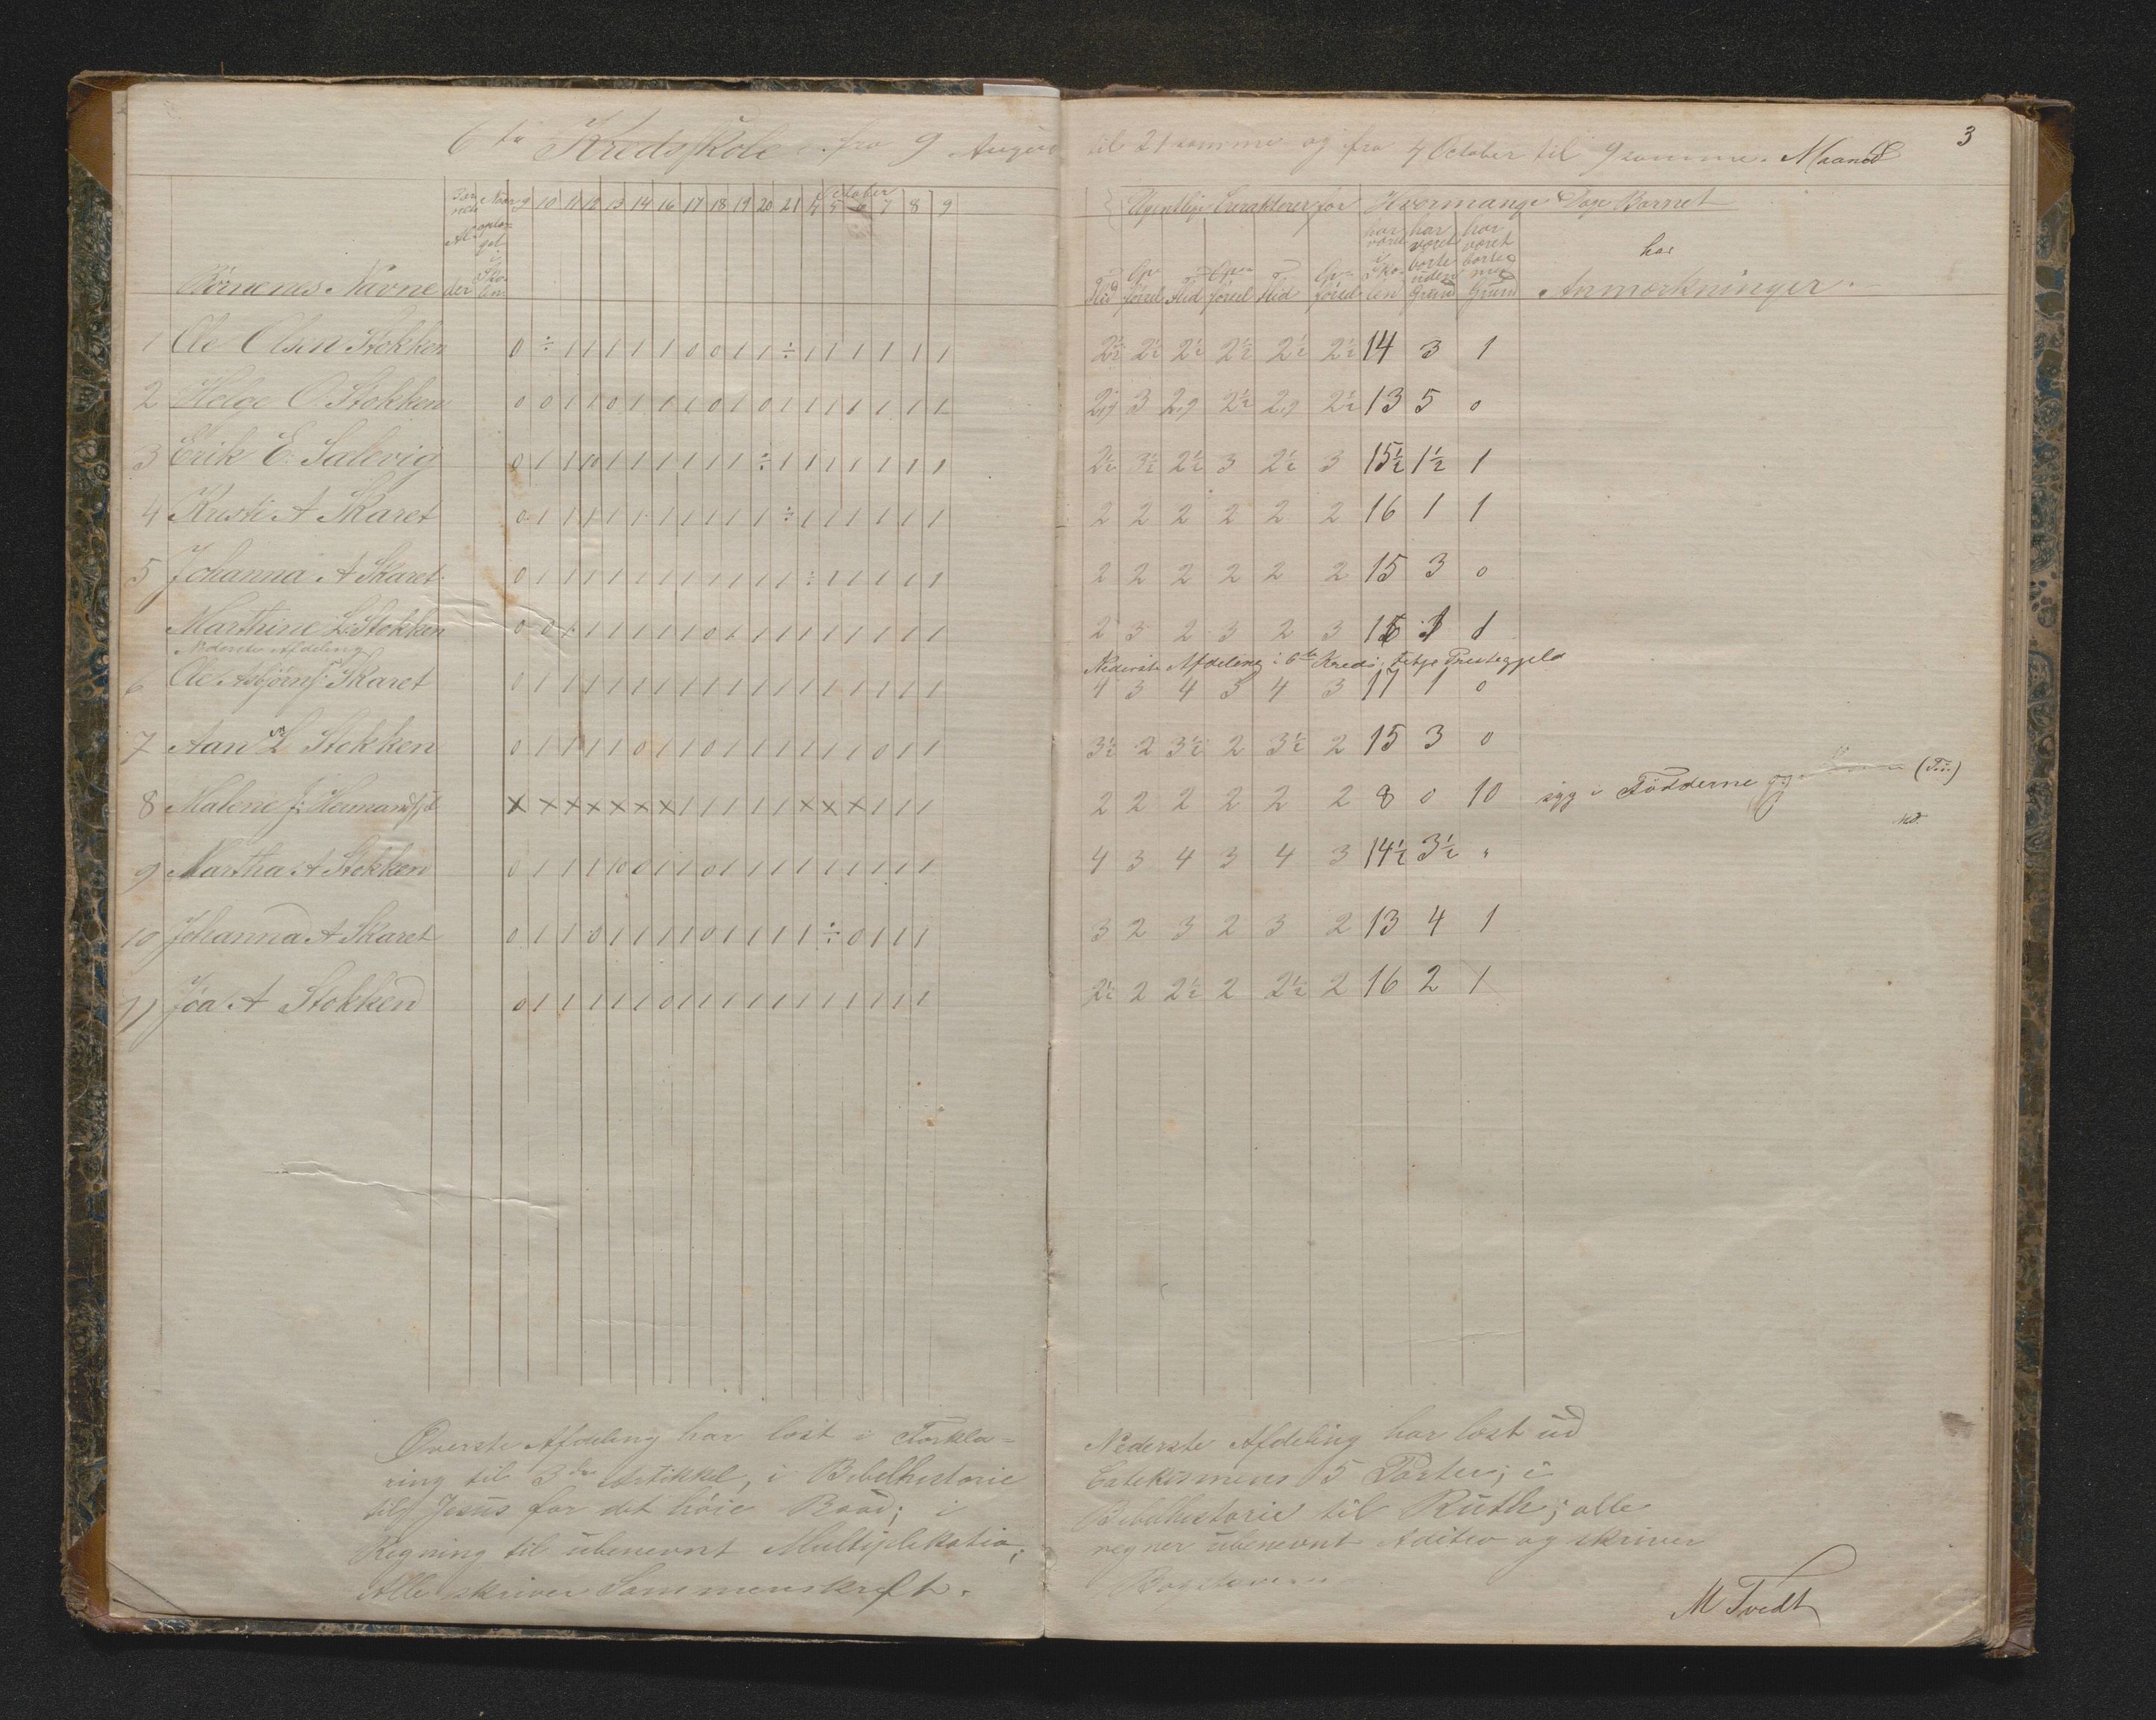 6te Kredsskole fra 9 August til 21 samme og fra 4 October til 9 samme Maaned
3
October
9 10 11 12 13 14 16 17 18 19 20 21 4 5 6 7 8 9
Ugentlige Carakterer for Hvormange Dage Barnet
har været i Skolen har været borte uden Grund har været borte med Grund
har
Børnenes Navne Al der Naar optaget i Skolen Flid Opførsel Flid Opførsel Flid Opførsel Anmærkninger.
1 Ole Olsen Stokken 0 ÷ 1 1 1 1 1 0 0 1 1 ÷ 1 1 1 1 1 1 2½ 2½ 2½ 2½ 2½ 2½ 14 3 1
2 Helge O. Stokken 0 0 1 1 0 1 1 1 0 1 0 1 1 1 1 1 1 1 2,9 3 2,9 2½ 2,9 2½ 13 5 0
3 Erik E. Salevig 0 1 1 10 1 1 1 1 1 1 ÷ 1 1 1 1 1 1 1 2½ 3½ 2½ 3 2½ 3 15½ 1½ 1
4 Kristi A Skaret 0 1 1 1 1 1 1 1 1 1 1 ÷ 1 1 1 1 1 1 2 2 2 2 2 2 16 1 1
5 Johanna A Skaret 0 1 1 1 1 1 1 1 1 1 1 1 ÷ 1 1 1 1 1 2 2 2 2 2 2 15 3 0
Marthine L. Stokken 0 0 1 1 1 1 1 1 0 1 1 1 1 1 1 1 1 1 2 3 2 3 2 3 15 3 1
Nederste Afdeling
Nederste Afdeling i 6te Kreds, Fitje Prestegjeld
6 Ole Asbjørns. Skaret 0 1 1 1 1 1 1 1 1 1 1 1 1 1 1 1 1 1 4 3 4 3 4 3 17 1 0
7 Aan L Stokken 0 1 1 1 1 0 1 1 0 1 1 1 1 1 1 0 1 1 3½ 2 3½ 2 3½ 2 15 3 0
8 Malene J. x x x x x x x 1 1 1 1 1 x x x 1 1 1 2 2 2 2 2 2 8 0 10 syg i Födderne
9 Martha A Stokken 0 1 1 1 10 0 1 1 0 1 1 1 1 1 1 1 1 1 4 3 4 3 4 3 14½ 3½ "
10 Johanna A Skaret 0 1 1 0 1 1 1 1 0 1 1 1 1 ÷ 0 1 1 1 3 2 3 2 3 2 13 4 1
11 Joa A Stokken 0 1 1 1 1 1 0 1 1 1 1 1 1 1 1 1 1 1 2½ 2 2½ 2 2½ 2 16 2 1
Øverste Afdeling har læst i Forkla=
ring til 3die Artikkel, i Bibelhistorie
til Jesus for det høie Raad; i
Regning til ubenevnt Multiplikation;
Alle skriver Sammenskrift.
Nederste Afdeling har læst ud
Catekismens 5 Parter; i
Bibelhistorie til Ruth; alle
regner ubenevnt Aditio og skriver
Bogstaver.
M Tvedt